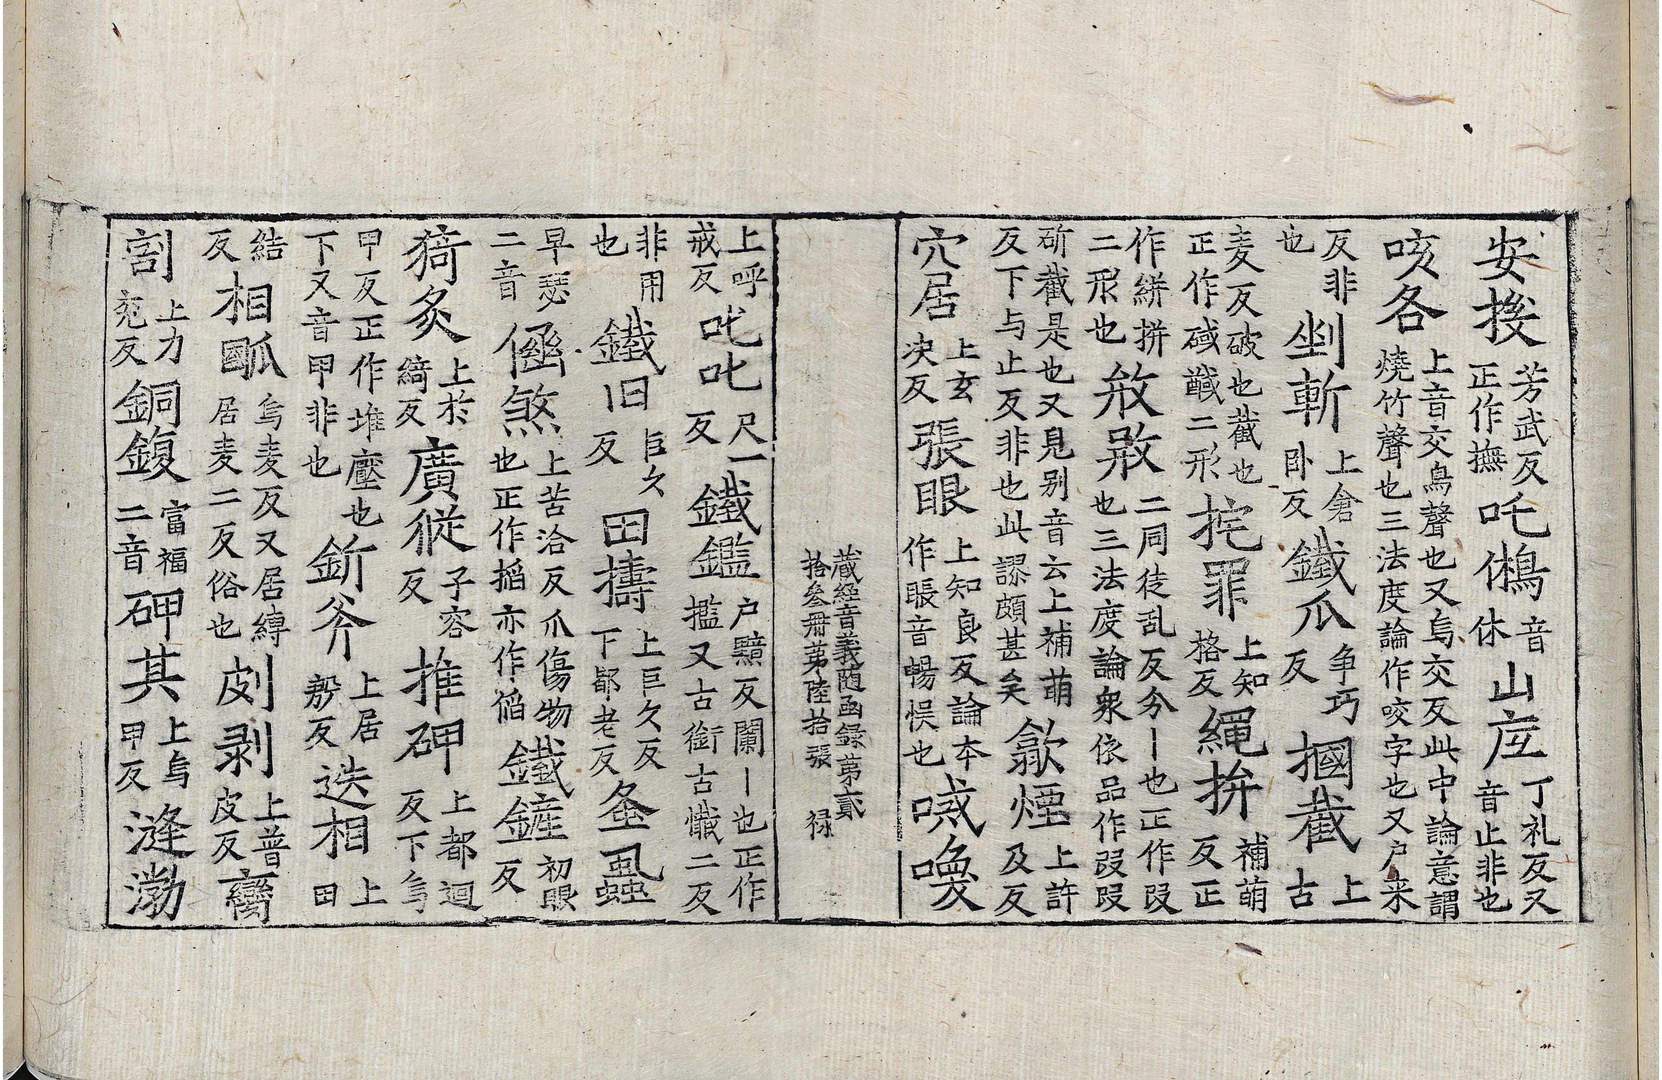 安撲芳武反正作撫吒鵂音休山庢丁礼反又音止非也
咳各上音交鳥聲也又烏交反此中論意謂燒竹聲也三法度論作咬字也又户来
反非也剉斬上倉卧反鐵爪争巧反摑截上古
麦反破也截也正作䤋二形挓罪上知格反繩拚補萌反正
作絣拼二形也敚敠二同徒乱反今丨也正作叚叚也三法度論衆依品作叚叚
斫截是也又見别音云上補萌反下与止反非也此謬頗甚矣歙煙上許及反
穴居上玄决反張眼上知良反論本作賬音暢悮也喊喚
藏經音義随函録第貳拾叄冊第陸拾張 禄
上呼戒反叱叱尺一反鐵鑑户黤反闌丨也正作㰐又古銜古懺二反
非用也鐵旧巨久反田擣上巨久反下都老反夆蝨
早瑟二音㥦煞上苦洽反爪傷物也正作掐亦作㓣鐵鏟初眼反
猗炙上於綺反廣從子容反推砷上都迴反下烏
甲反正作堆壓也下又音甲非也釿斧上居殷反迭相上田
結反相㓰烏麦反又居縛居麦二反俗也㓟剥上普皮反臠
割上力兖反銅鍑富福二音砷其上烏甲反漨渤